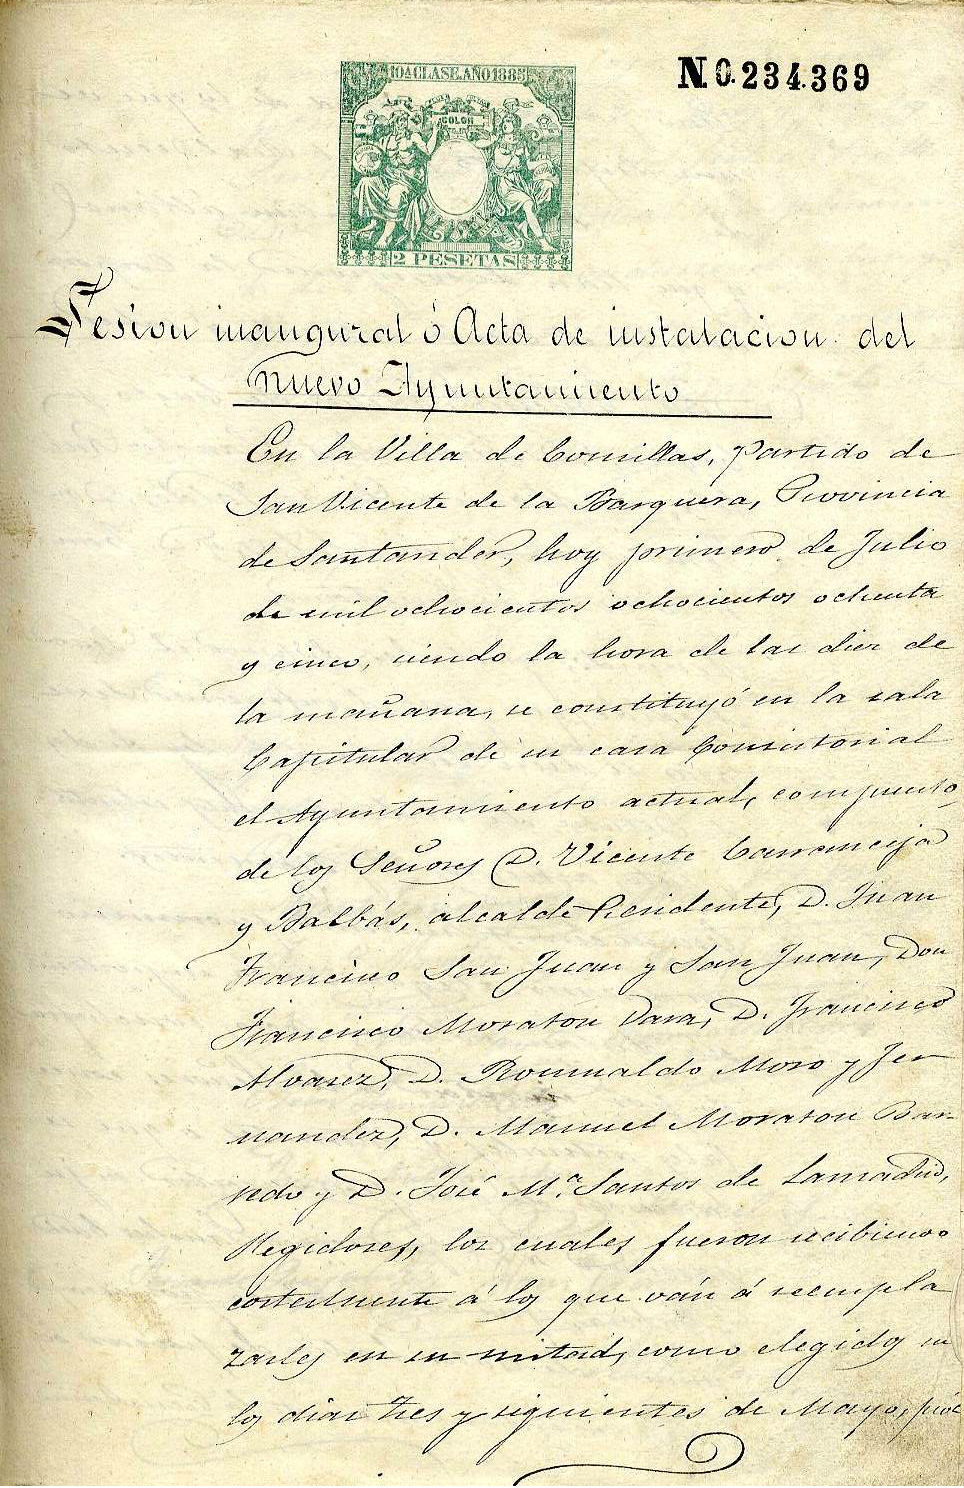 10ª CLASE. AÑO 1885
N.0.234.369
COLON
2 PESETAS
Sesion inaugural ó Acta de instalacion del
nuevo Ayuntamiento
En la Villa de Comillas, Partido de
San Vicente de la Barquera, Provincia
de Santander, hoy primero de Julio
de mil ochocientos ochocientos ochenta
y cinco, siendo la hora de las diez de
la mañana, se constituyó en la sala
Capitular de su casa Consistorial
el Ayuntamiento actual, compuesto,
de los Señores D. Vicente Carranceja
y Balbás, alcalde Presidente, D. Juan
Francisco San Juan y San Juan, Don
Francisco Moraton Vara, D. Francisco
Alvarez, D. Romualdo Moro y Fer
nandez, D. Manuel Moraton Bar
redo y D. José Mª Santos de Lamadrid,
Regidores, los cuales fueron recibiendo
cortesmente á los que ván á reempla
zarles en su mitad, como elegidos en
los dias tres y siguientes de Mayo, pró